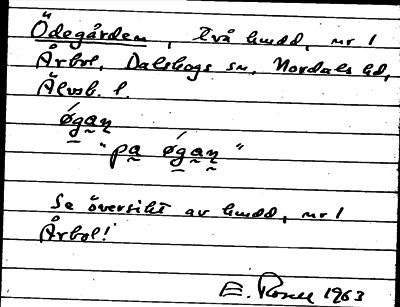 Ödegården, två hmdd, nr 1
Årbol, Dalskogs sn, Nordals hd,
Älvsb. l.
ǿgan̥
"pa ǿgan̥"
Se översikt av hmdd, nr 1
Årbol!
E. Rosell 1963